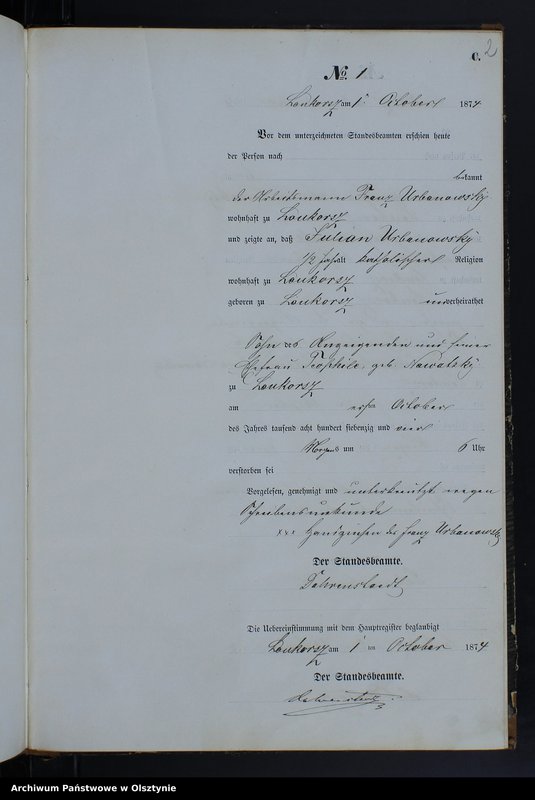 C. 2
No 1
Loukorsz am 1ten October 1874
Vor dem unterzeichneten Standesbeamten erschien heute
der Person nach
bekannt
der Arbeitsmann Franz Urbanowsky
wohnhaft zu Loukorsz
und zeigte an, daß Julian Urbanowsky
1/2 Jahr alt katholischer Religion
wohnhaft zu Loukorsz
geboren zu Loukorsz unverheirathet
Sohn des Anzeigenden und seiner
Ehefrau Teophile, geb. Nawatsky
zu Loukorsz
am ersten October
des Jahres tausend acht hundert siebenzig und vier
Morgens um 6 Uhr
verstorben sei
Vorgelesen, genehmigt und unterkreuzt wegen
Schreibensunkunde
xxx Handzeichen des Franz Urbanowsky
Der Standesbeamte.
Die Uebereinstimmung mit dem Hauptregister beglaubigt
Loukorsz am 1 ten October 1874
Der Standesbeamte.
Archiwum Państwowe w Olsztynie